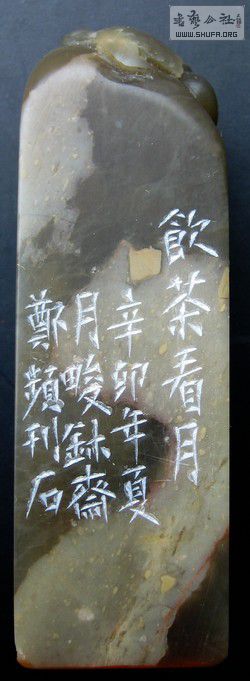 飲茶看月
辛卯年夏
月畯鉥齋
鄭蘋刊石
書藝公社
WWW.SHUFA.ORG